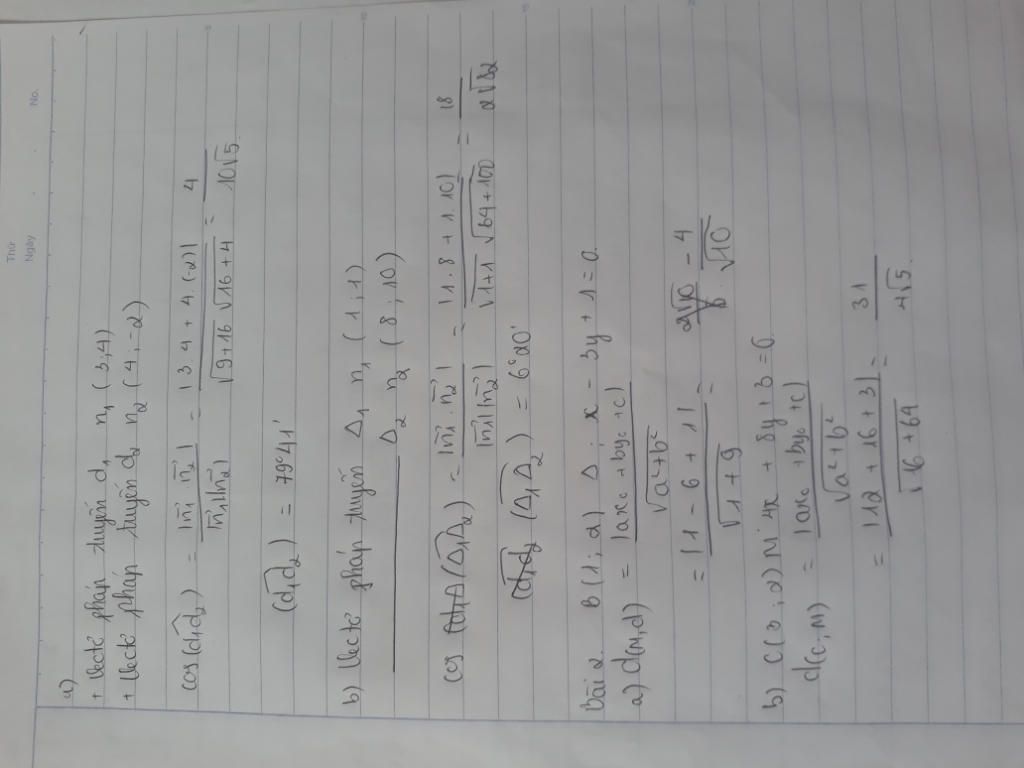 Thứ
Ngày No.
a)
+ Vectơ pháp tuyến d₁ n₁ (3;4)
+ Vectơ pháp tuyến d₂ n₂ (4;-2)
cos(d₁d₂) = |n₁ n₂| / |n₁||n₂| = |3.4 + 4.(-2)| / √9+16 √16+4 = 4 / 10√5
(d₁d₂) = 79°41'
b) Vectơ pháp tuyến Δ₁ n₁ (1;1)
Δ₂ n₂ (8;10)
cos (Δ₁Δ₂) = |n₁.n₂| / |n₁||n₂| = |1.8 + 1.10| / √1+1 √64+100 = 18 / 2√82
(Δ₁Δ₂) = 6°20'
bài 2 B(1;2) Δ: x - 3y + 1 = 0
a) d(M,d) = |ax₀ + by₀ + c| / √a²+b²
= |1 - 6 + 1| / √1+9 = - 4 / √10
b) C(3;2) M: 4x + 8y + 3 = 0
d(C,M) = |ax₀ + by₀ + c| / √a²+b²
= |12 + 16 + 3| / √16+64 = 31 / 4√5